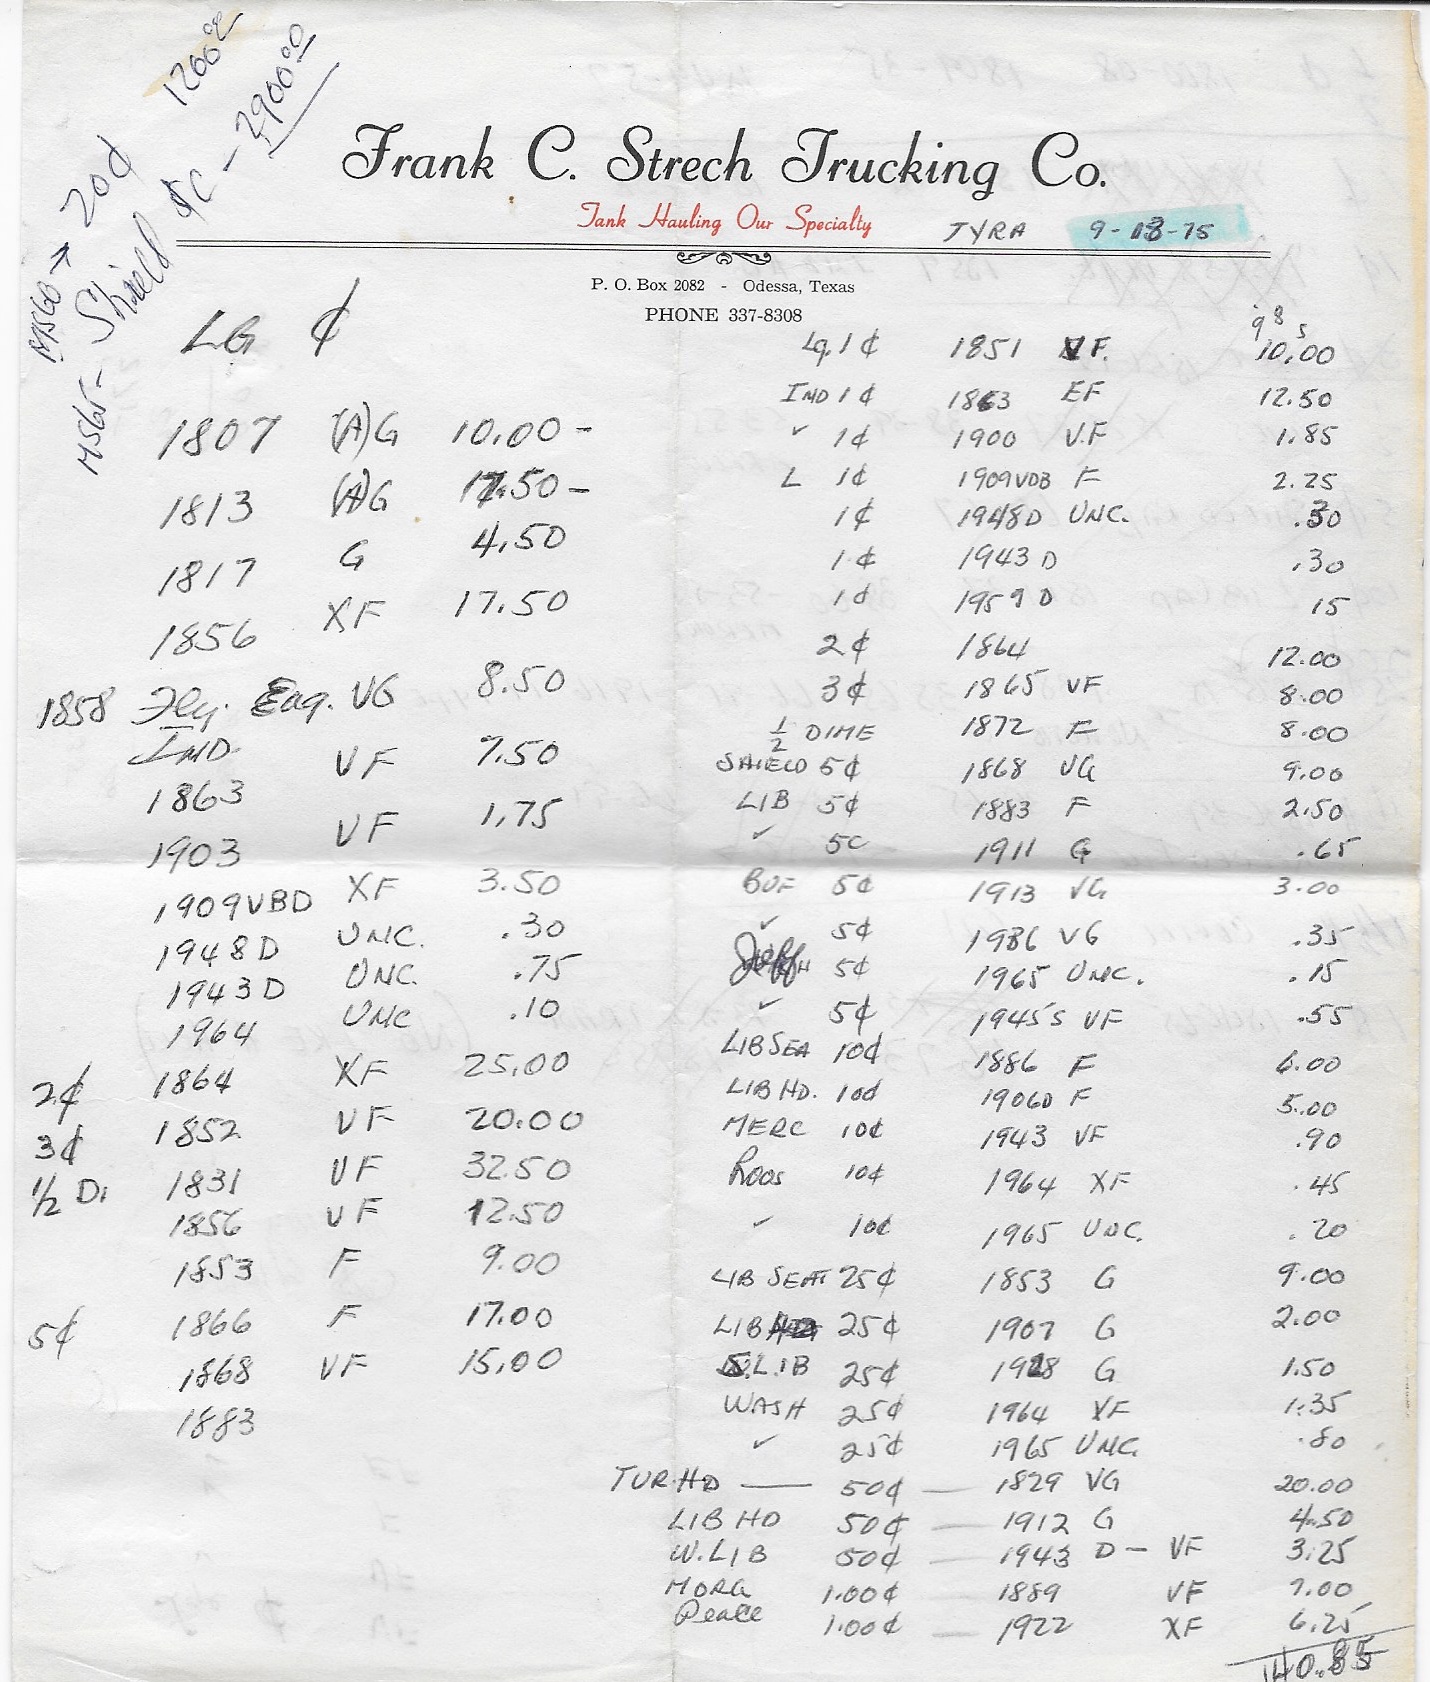 MS60 → 20¢ 1200.00
MS65 - Shield 5C - 2900.00
Frank C. Strech Trucking Co.
Tank Hauling Our Specialty
TYRA 9-08-75
P. O. Box 2082 - Odessa, Texas
PHONE 337-8308
LG ¢
1807 (A)G 10.00 -
1813 (A)G 17.50 -
1817 G 4.50
1856 XF 17.50
1858 Fly. Eag. VG 8.50
IND
1863 VF 7.50
1903 VF 1.75
1909VBD XF 3.50
1948D UNC. .30
1943D UNC. .75
1964 UNC .10
2¢ 1864 XF 25.00
3¢ 1852 VF 20.00
1/2 Di 1831 VF 32.50
1856 VF 12.50
1853 F 9.00
5¢ 1866 F 17.00
1868 VF 15.00
1883
Lg. 1¢ 1851 VF. 10.00
IND 1¢ 1863 EF 12.50
✓ 1¢ 1900 V.F 1.85
L 1¢ 1909VDB F 2.25
1¢ 1948D UNC. .30
1¢ 1943D .30
1¢ 1959D 15
2¢ 1864 12.00
3¢ 1865 VF 8.00
1/2 DIME 1872 F 8.00
SHIELD 5¢ 1868 VG 9.00
LIB 5¢ 1883 F 2.50
✓ 5C 1911 G .65
BUF 5¢ 1913 VG 3.00
✓ 5¢ 1936 VG .35
Jeff 5¢ 1965 UNC. .15
✓ 5¢ 1945'S VF .55
LIB SEA 10¢ 1886 F 6.00
LIB HD. 10¢ 1906D F 5.00
MERC 10¢ 1943 VF .90
Roos 10¢ 1964 XF .45
✓ 10¢ 1965 UNC. .20
LIB SEAT 25¢ 1853 G 9.00
LIB 25¢ 1907 G 2.00
S.LIB 25¢ 1928 G 1.50
WASH 25¢ 1964 XF 1.35
✓ 25¢ 1965 UNC. .80
TUR.HD — 50¢ — 1829 VG 20.00
LIB HD 50¢ — 1912 G 4.50
W.LIB 50¢ — 1943 D - VF 3.25
MORG 1.00¢ — 1889 VF 7.00
Peace 1.00¢ — 1922 XF 6.25
140.85